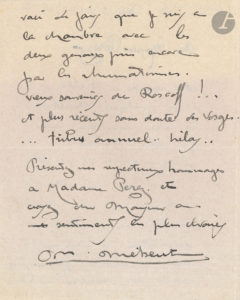 voici 10 jours que je suis à
la chambre avec les
deux genoux pris encore
par les rhumatismes.
vieux souvenirs de Roscoff !..
et plus récents sans doute des Vosges.
... tribut annuel. hélas..
Présentez mes respectueux hommages
à Madame Perez et
croyez cher Monsieur en
mes sentiments les plus dévoués
M. Méheut